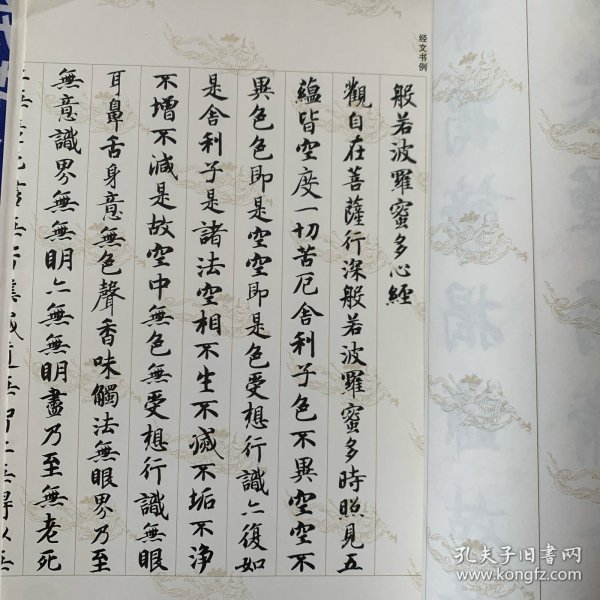 经文书例
般若波羅蜜多心經
觀自在菩薩行深般若波羅蜜多時照見五
蘊皆空度一切苦厄舍利子色不異空空不
異色色即是空空即是色受想行識亦復如
是舍利子是諸法空相不生不滅不垢不淨
不增不減是故空中無色無受想行識無眼
耳鼻舌身意無色聲香味觸法無眼界乃至
無意識界無無明亦無無明盡乃至無老死
孔夫子旧书网
www.kongfz.com